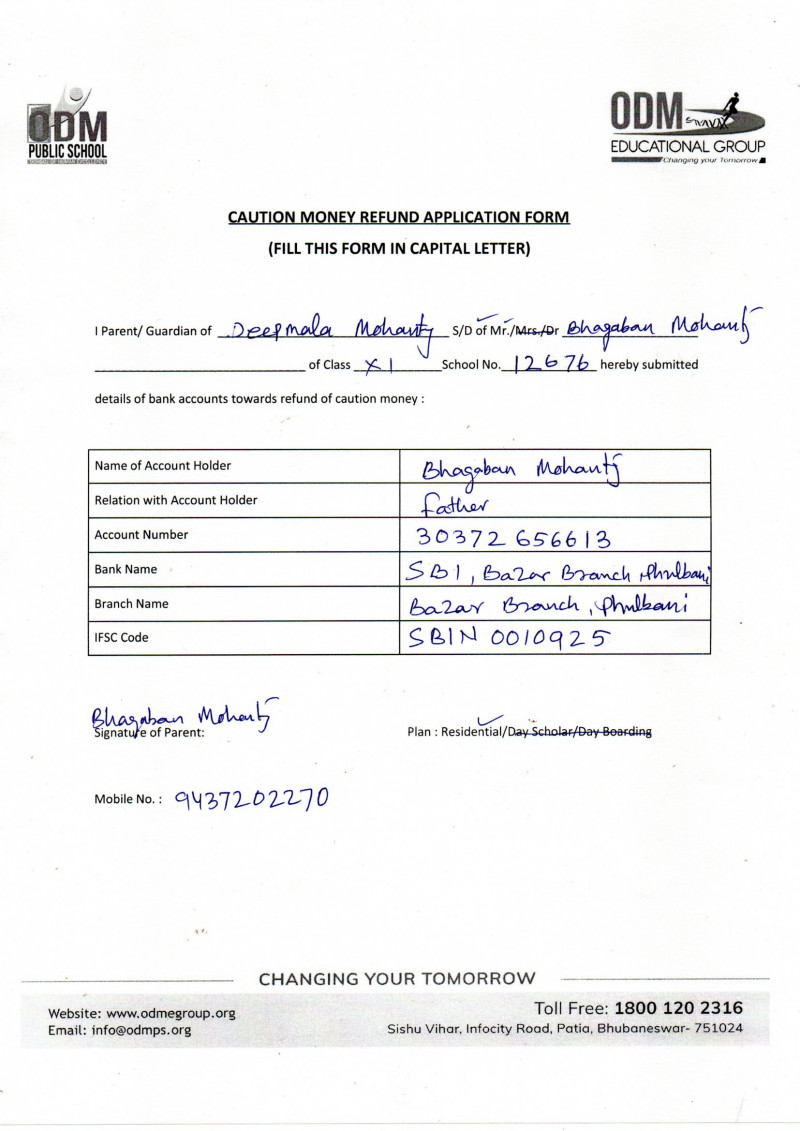 ODM
PUBLIC SCHOOL
SCHOOL OF HUMAN EXCELLENCE
ODM
EDUCATIONAL GROUP
Changing your Tomorrow
CAUTION MONEY REFUND APPLICATION FORM
(FILL THIS FORM IN CAPITAL LETTER)
I Parent/ Guardian of Deepmala Mohanty S/D of Mr./Mrs./Dr Bhagaban Mohanty
of Class XI School No. 12676 hereby submitted
details of bank accounts towards refund of caution money :
Name of Account Holder Bhagaban Mohanty
Relation with Account Holder father
Account Number 30372656613
Bank Name SBI, Bazar Branch, Phulbani
Branch Name Bazar Branch, Phulbani
IFSC Code SBIN 0010925
Bhagaban Mohanty
Signature of Parent: Plan : Residential/Day Scholar/Day Boarding
Mobile No. : 9437202270
CHANGING YOUR TOMORROW
Website: www.odmegroup.org Toll Free: 1800 120 2316
Email: info@odmps.org Sishu Vihar, Infocity Road, Patia, Bhubaneswar- 751024